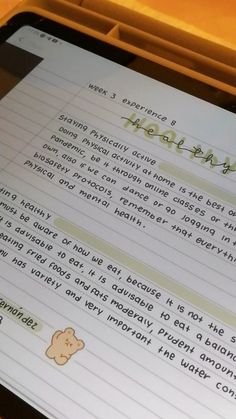 week 3 experience 8
Healthy
Staying physically active
Doing physical activity at home is the best o
Pandemic, be it through online classes or th
own, also if we can dance or go jogging in t
biosafety protocols, remember that everyth
physical and mental health.
ing healthy
must be aware of how we eat, because it is not the s
is advisable to eat, it is advisable to eat a balan
eating fried foods and fats moderately, prudent amoun
nu has variety and very important the water con
ernández